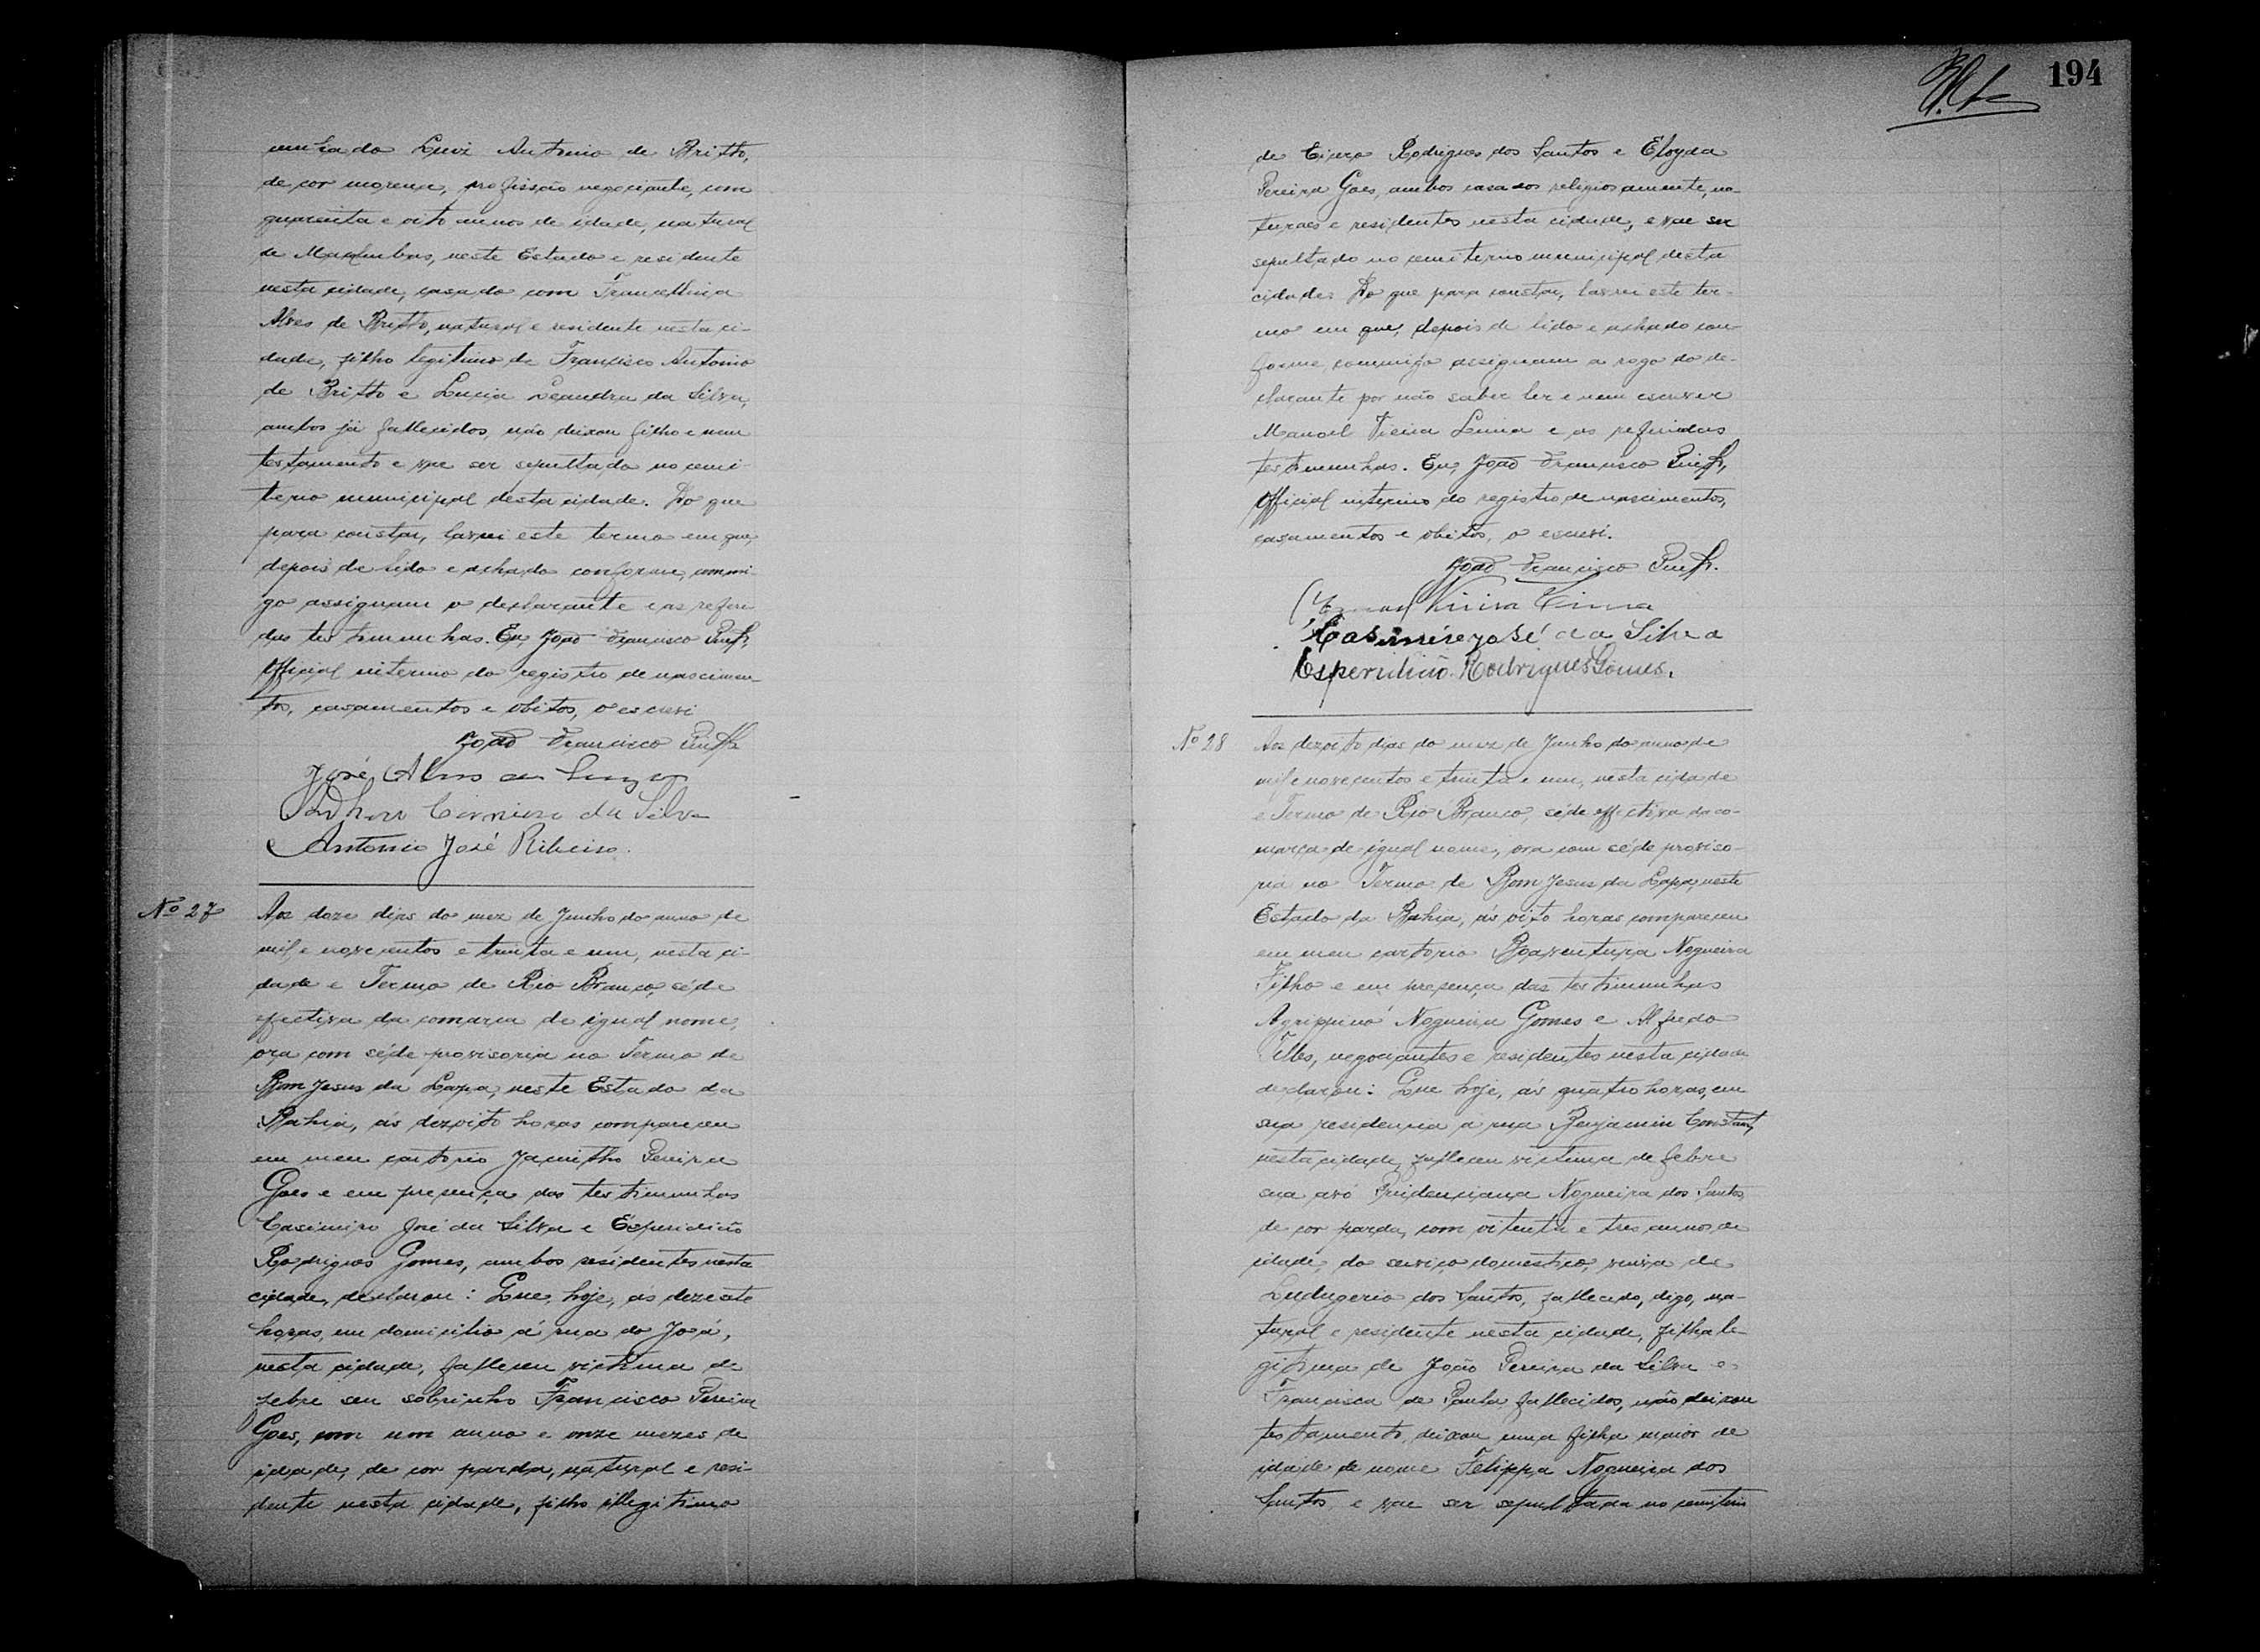 cunhado Luiz Antonio de Britto,
de cor morena, profissão negociante, com
quarenta e oito annos de idade, natural
de Macahubas, neste Estado e residente
nesta cidade, casado com Francellina
Alves de Britto, natural e residente nesta ci-
dade, filho legitimo de Francisco Antonio
de Britto e Lucia Leandra da Silva,
ambos já fallecidos, não deixou filho e nem
testamento e vae ser sepultado no cemi-
terio municipal desta cidade. Do que
para constar, lavrei este termo em que,
depois de lido e achado conforme, commi-
go assignam o declarante e as referi-
das testimunhas. Eu, João Francisco
Official interino do registro de nascimen-
tos, casamentos e obitos, o escrevi
João Francisco
José Alves de Souza
Carneiro da Silva
Antonio José Ribeiro.
Nº 27
Aos doze dias do mez de Junho do anno de
mil e novecentos e trinta e um, nesta ci-
dade e Termo de Rio Branco, séde
effectiva da comarca de igual nome,
ora com séde provisoria no Termo de
Bom Jesus da Lapa, neste Estado da
Bahia, ás dezoito horas compareceu
em meu cartorio Jacintho Pereira
Goes e em presença das testimunhas
Casimiro José da Silva e Esperidião
Rodrigues Gomes, ambos residentes nesta
cidade, declarou: Que, hoje, ás dezesete
horas, em domicilio á rua do Joá,
nesta cidade, falleceu victima de
febre seu sobrinho Francisco Pereira
Goes, com um anno e onze mezes de
idade, de cor parda, natural e resi-
dente nesta cidade, filho illegitimo
194
de Cicero Rodrigues dos Santos e Eloyda
Pereira Goes, ambos casados religiosamente, na-
turaes e residentes nesta cidade, e vae ser
sepultado no cemiterio municipal desta
cidade. Do que para constar, lavrei este ter-
mo em que, depois de lido e achado con-
forme, commigo assignam a rogo do de-
clarante por não saber ler e nem escrever
Manoel Vieira Lima e as referidas
testimunhas. Eu, João Francisco
Official interino do registro de nascimentos,
casamentos e obitos, o escrevi.
João Francisco
Manoel Vieira Lima
Casimiro José da Silva
Esperidião Rodrigues Gomes.
Nº 28
Aos dezoito dias do mez de Junho do anno de
mil e novecentos e trinta e um, nesta cidade
e Termo de Rio Branco, séde effectiva da co-
marca de igual nome, ora com séde proviso-
ria no Termo de Bom Jesus da Lapa, neste
Estado da Bahia, ás oito horas compareceu
em meu cartorio Boaventura Nogueira
Filho e em presença das testimunhas
Agrippino Nogueira Gomes e Alfredo
Telles, negociantes e residentes nesta cidade
declarou: Que hoje, ás quatro horas, em
sua residencia á rua Benjamin Constant,
nesta cidade, falleceu victima de febre
sua avó Prudenciana Nogueira dos Santos
de cor parda, com oitenta e tres annos de
idade, do serviço domestico, viuva de
Ludugerio dos Santos, fallecido, digo, na-
tural e residente nesta cidade, filha le-
gitima de João Pereira da Silva e
Francisca de Paula fallecidos, não deixou
testamento, deixou uma filha maior de
idade de nome Felippa Nogueira dos
Santos e vae ser sepultada no cemiterio